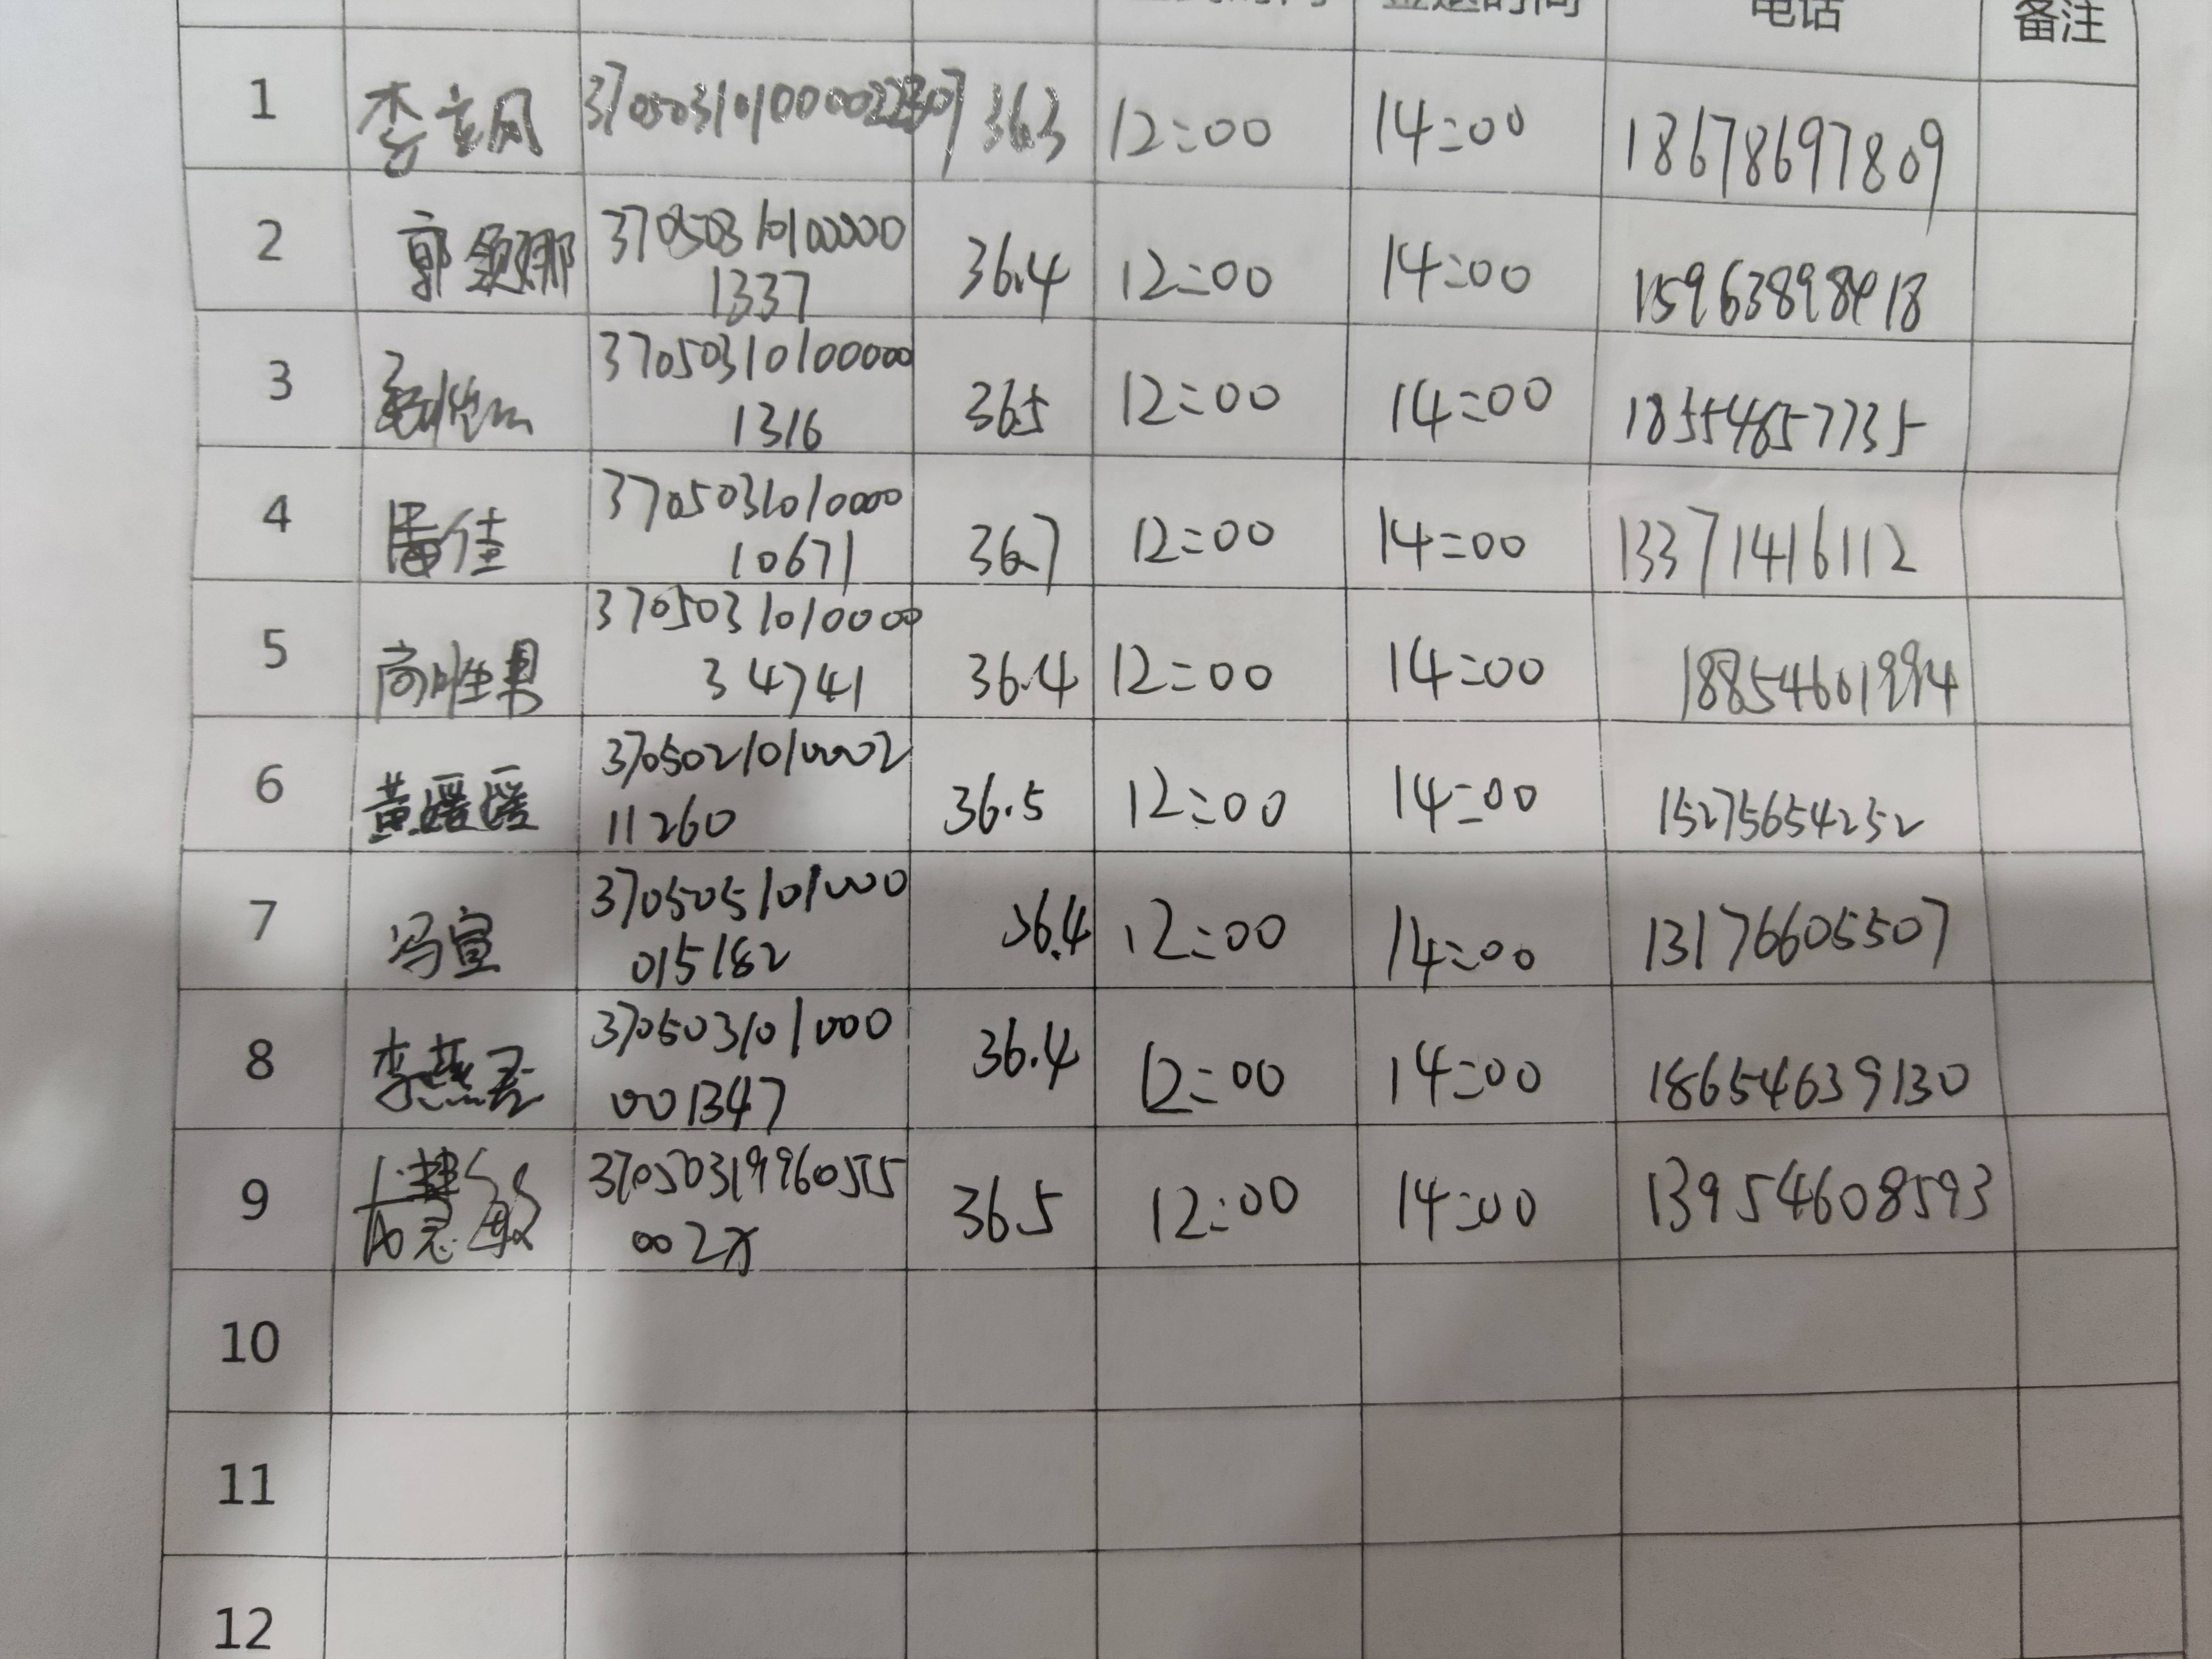 电话 备注
1 36.3 12:00 14:00 18678697809
2 郭 3705031010000
1337 36.4 12:00 14:00
3 37050310100000
1316 36.5 12:00 14:00 18554857735
4 潘佳 3705031010000
10671 36.7 12:00 14:00 13371416112
5 3705031010000
34741 36.4 12:00 14:00 18854601994
6 黄媛媛 3705021010002
11260 36.5 12:00 14:00 15275654252
7 冯宣 370505101000
015182 36.4 12:00 14:00 13176605507
8 李燕 370503101000
001347 36.4 12:00 14:00 18654639130
9 37050319960515
002X 36.5 12:00 14:00 13954608593
10
11
12